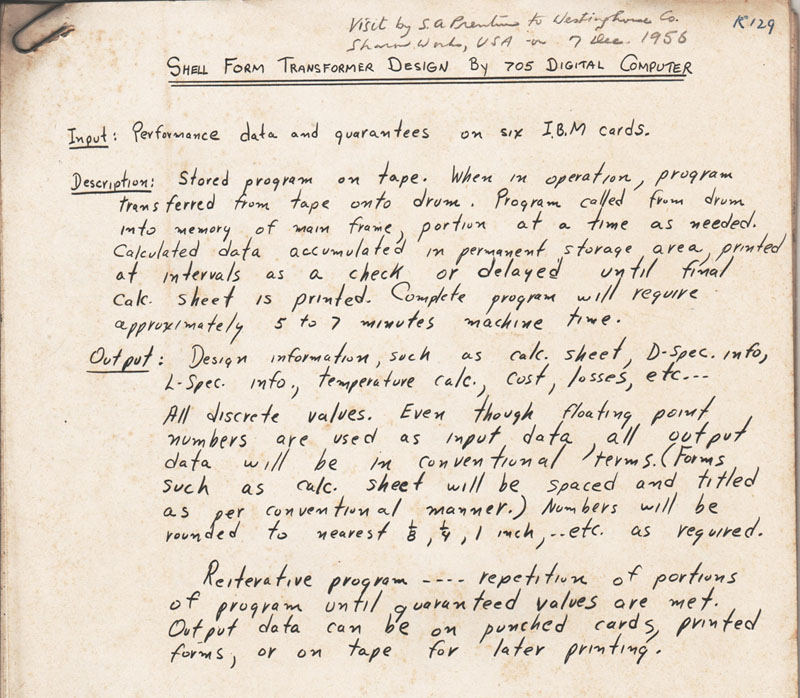 Visit by S.A Prentice to Westinghouse Co.
K129
Sharon Works, USA on 7 Dec. 1956
SHELL FORM TRANSFORMER DESIGN BY 705 DIGITAL COMPUTER
Input: Performance data and guarantees on six I.B.M cards.
Description: Stored program on tape. When in operation, program
transferred from tape onto drum. Program called from drum
into memory of main frame, portion at a time as needed.
Calculated data accumulated in permanent storage area, printed
at intervals as a check or delayed until final
calc. sheet is printed. Complete program will require
approximately 5 to 7 minutes machine time.
Output: Design information, such as calc. sheet, D-Spec. info,
L-Spec. info., temperature calc., cost, losses, etc---
All discrete values. Even though floating point
numbers are used as input data, all output
data will be in conventional terms. (Forms
such as calc. sheet will be spaced and titled
as per conventional manner.) Numbers will be
rounded to nearest 1/8, 1/4, 1 inch,--etc. as required.
Reiterative program ---- repetition of portions
of program until guaranteed values are met.
Output data can be on punched cards, printed
forms, or on tape for later printing.